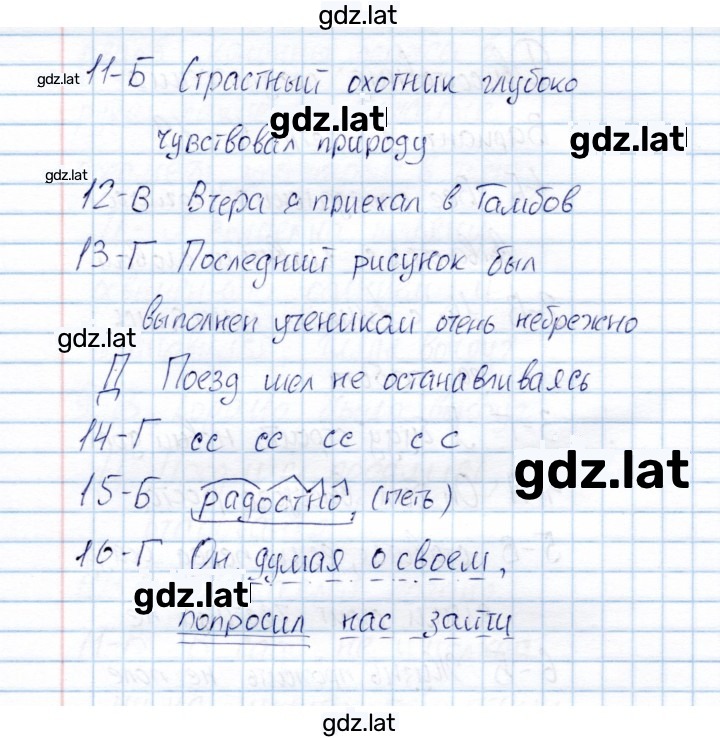 gdz.lat
gdz.lat 11-Б Страстный охотник глубоко
чувствовал природу
gdz.lat gdz.lat
gdz.lat
12-В Вчера я приехал в Тамбов
13-Г Последний рисунок был
выполнен учеником очень небрежно
gdz.lat
Д Поезд шел не останавливаясь
14-Г сс сс сс с с
gdz.lat
15-Б радостно, (петь)
16-Г Он думая о своем,
gdz.lat
попросил нас зайти
gdz.lat